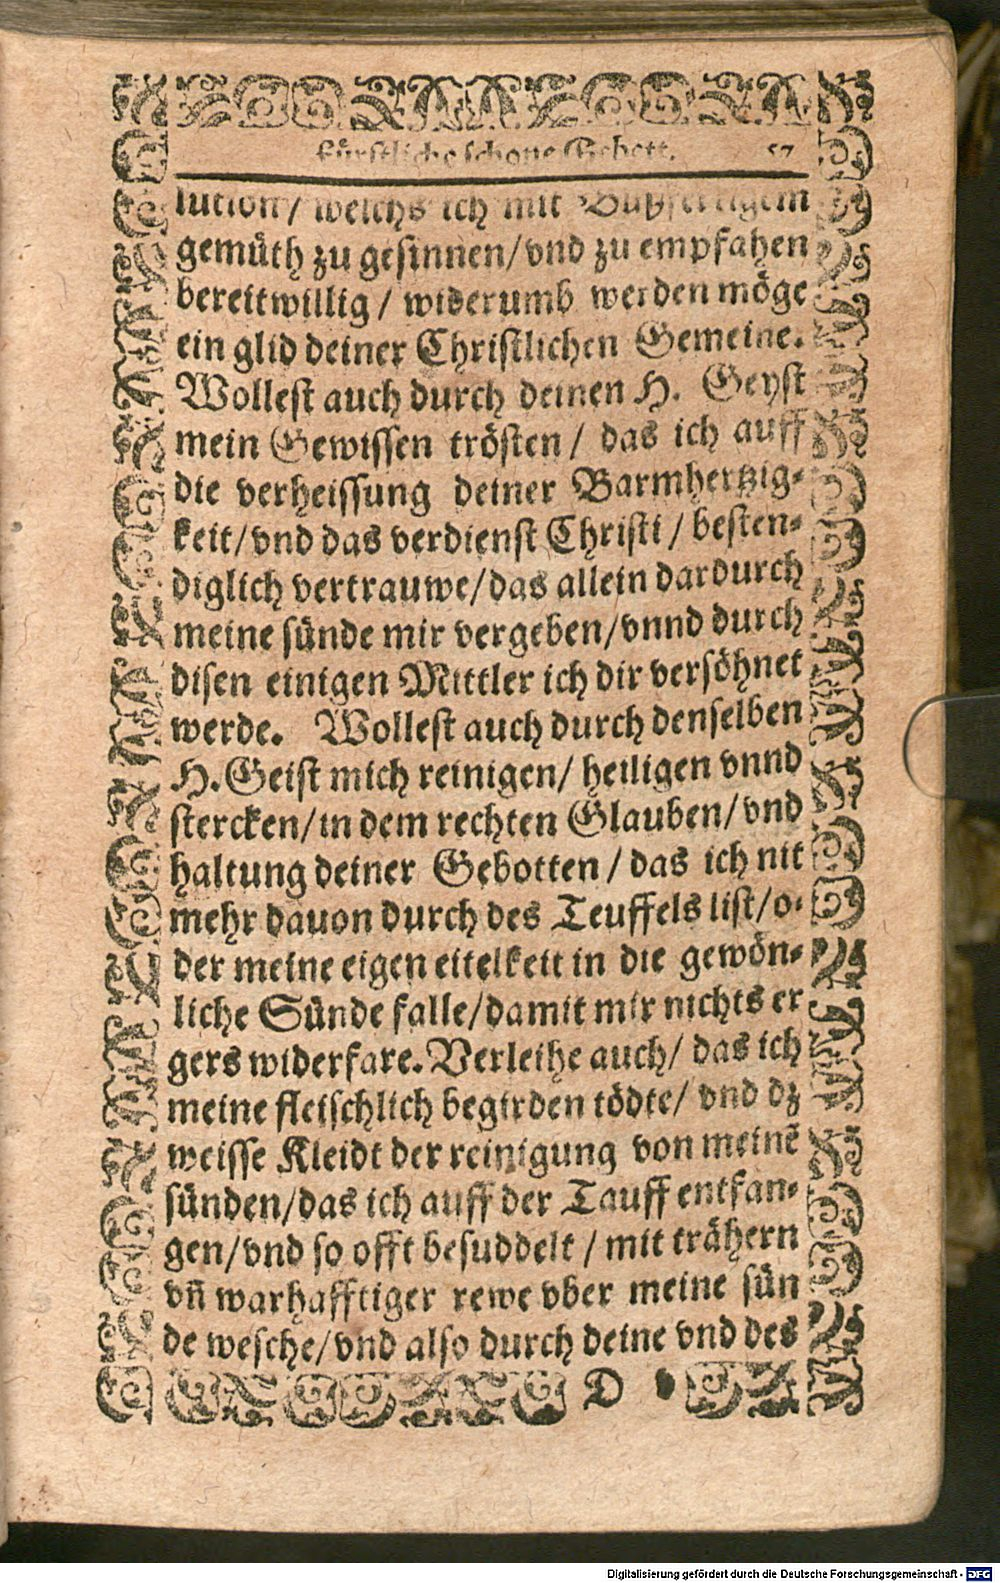 Fürstliche schone Gebett. 57
lution / welchs ich mit Bußfertigem
gemüth zu gesinnen/ vnd zu empfahen
bereitwillig / widerumb werden möge
ein glid deiner Christlichen Gemeine.
Wollest auch durch deinen H. Geyst
mein Gewissen trösten / das ich auff
die verheissung deiner Barmhertzig-
keit/ vnd das verdienst Christi / besten-
diglich vertrauwe/ das allein dardurch
meine sünde mir vergeben/ vnnd durch
disen einigen Mittler ich dir versöhnet
werde. Wollest auch durch denselben
H. Geist mich reinigen/ heiligen vnnd
stercken/ in dem rechten Glauben/ vnd
haltung deiner Gebotten / das ich nit
mehr dauon durch des Teuffels list/ o-
der meine eigen eitelkeit in die gewön-
liche Sünde falle/ damit mir nichts er
gers widerfare. Verleihe auch/ das ich
meine fleischlich begirden tödte/ vnd dz
weisse Kleidt der reinigung von meinē
sünden/ das ich auff der Tauff entfan-
gen/ vnd so offt besuddelt / mit trähern
vn̄ warhafftiger rewe vber meine sün
de wesche/ vnd also durch deine vnd des
D
Digitalisierung gefördert durch die Deutsche Forschungsgemeinschaft - DFG